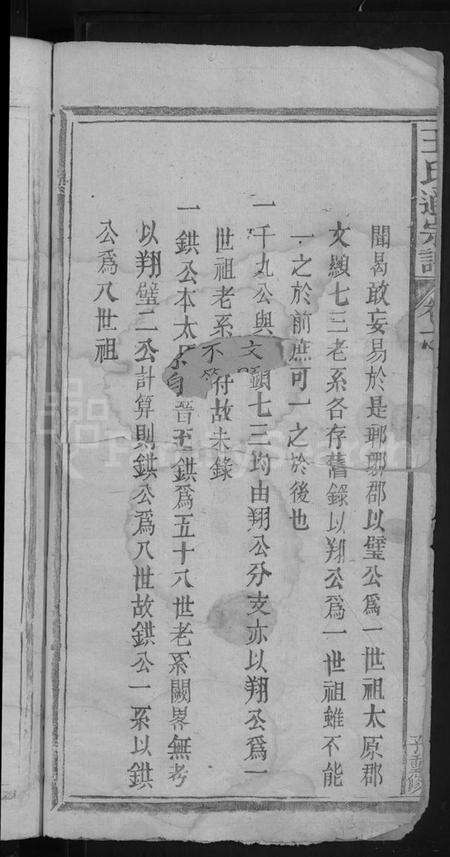 王氏通宗譜
卷一
聞曷敢妄易於是郫瑯郡以璧公爲一世祖太原郡
文顯七三老系各存舊錄以翔公爲一世祖雖不能
一之於前庶可一之於後也
一千九公與文顯七三均由翔公分支亦以翔公爲一
世祖老系不符故未錄
一鉷公本太系自晉至鉷爲五十八世老系闕畧無考
以翔璧二公計算則鉷公爲八世故鉷公一系以鉷
公爲八世祖
重修